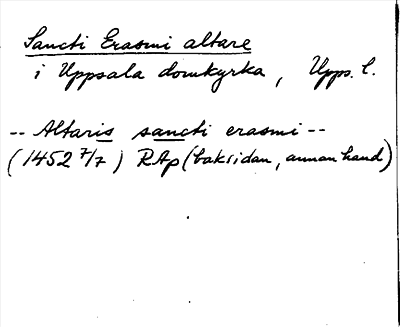 Sancti Erasmi altare
i Uppsala domkyrka, Upps. l.
-- Altaris sancti erasmi --
(1452 7/7) RAp (baksidan, annan hand)